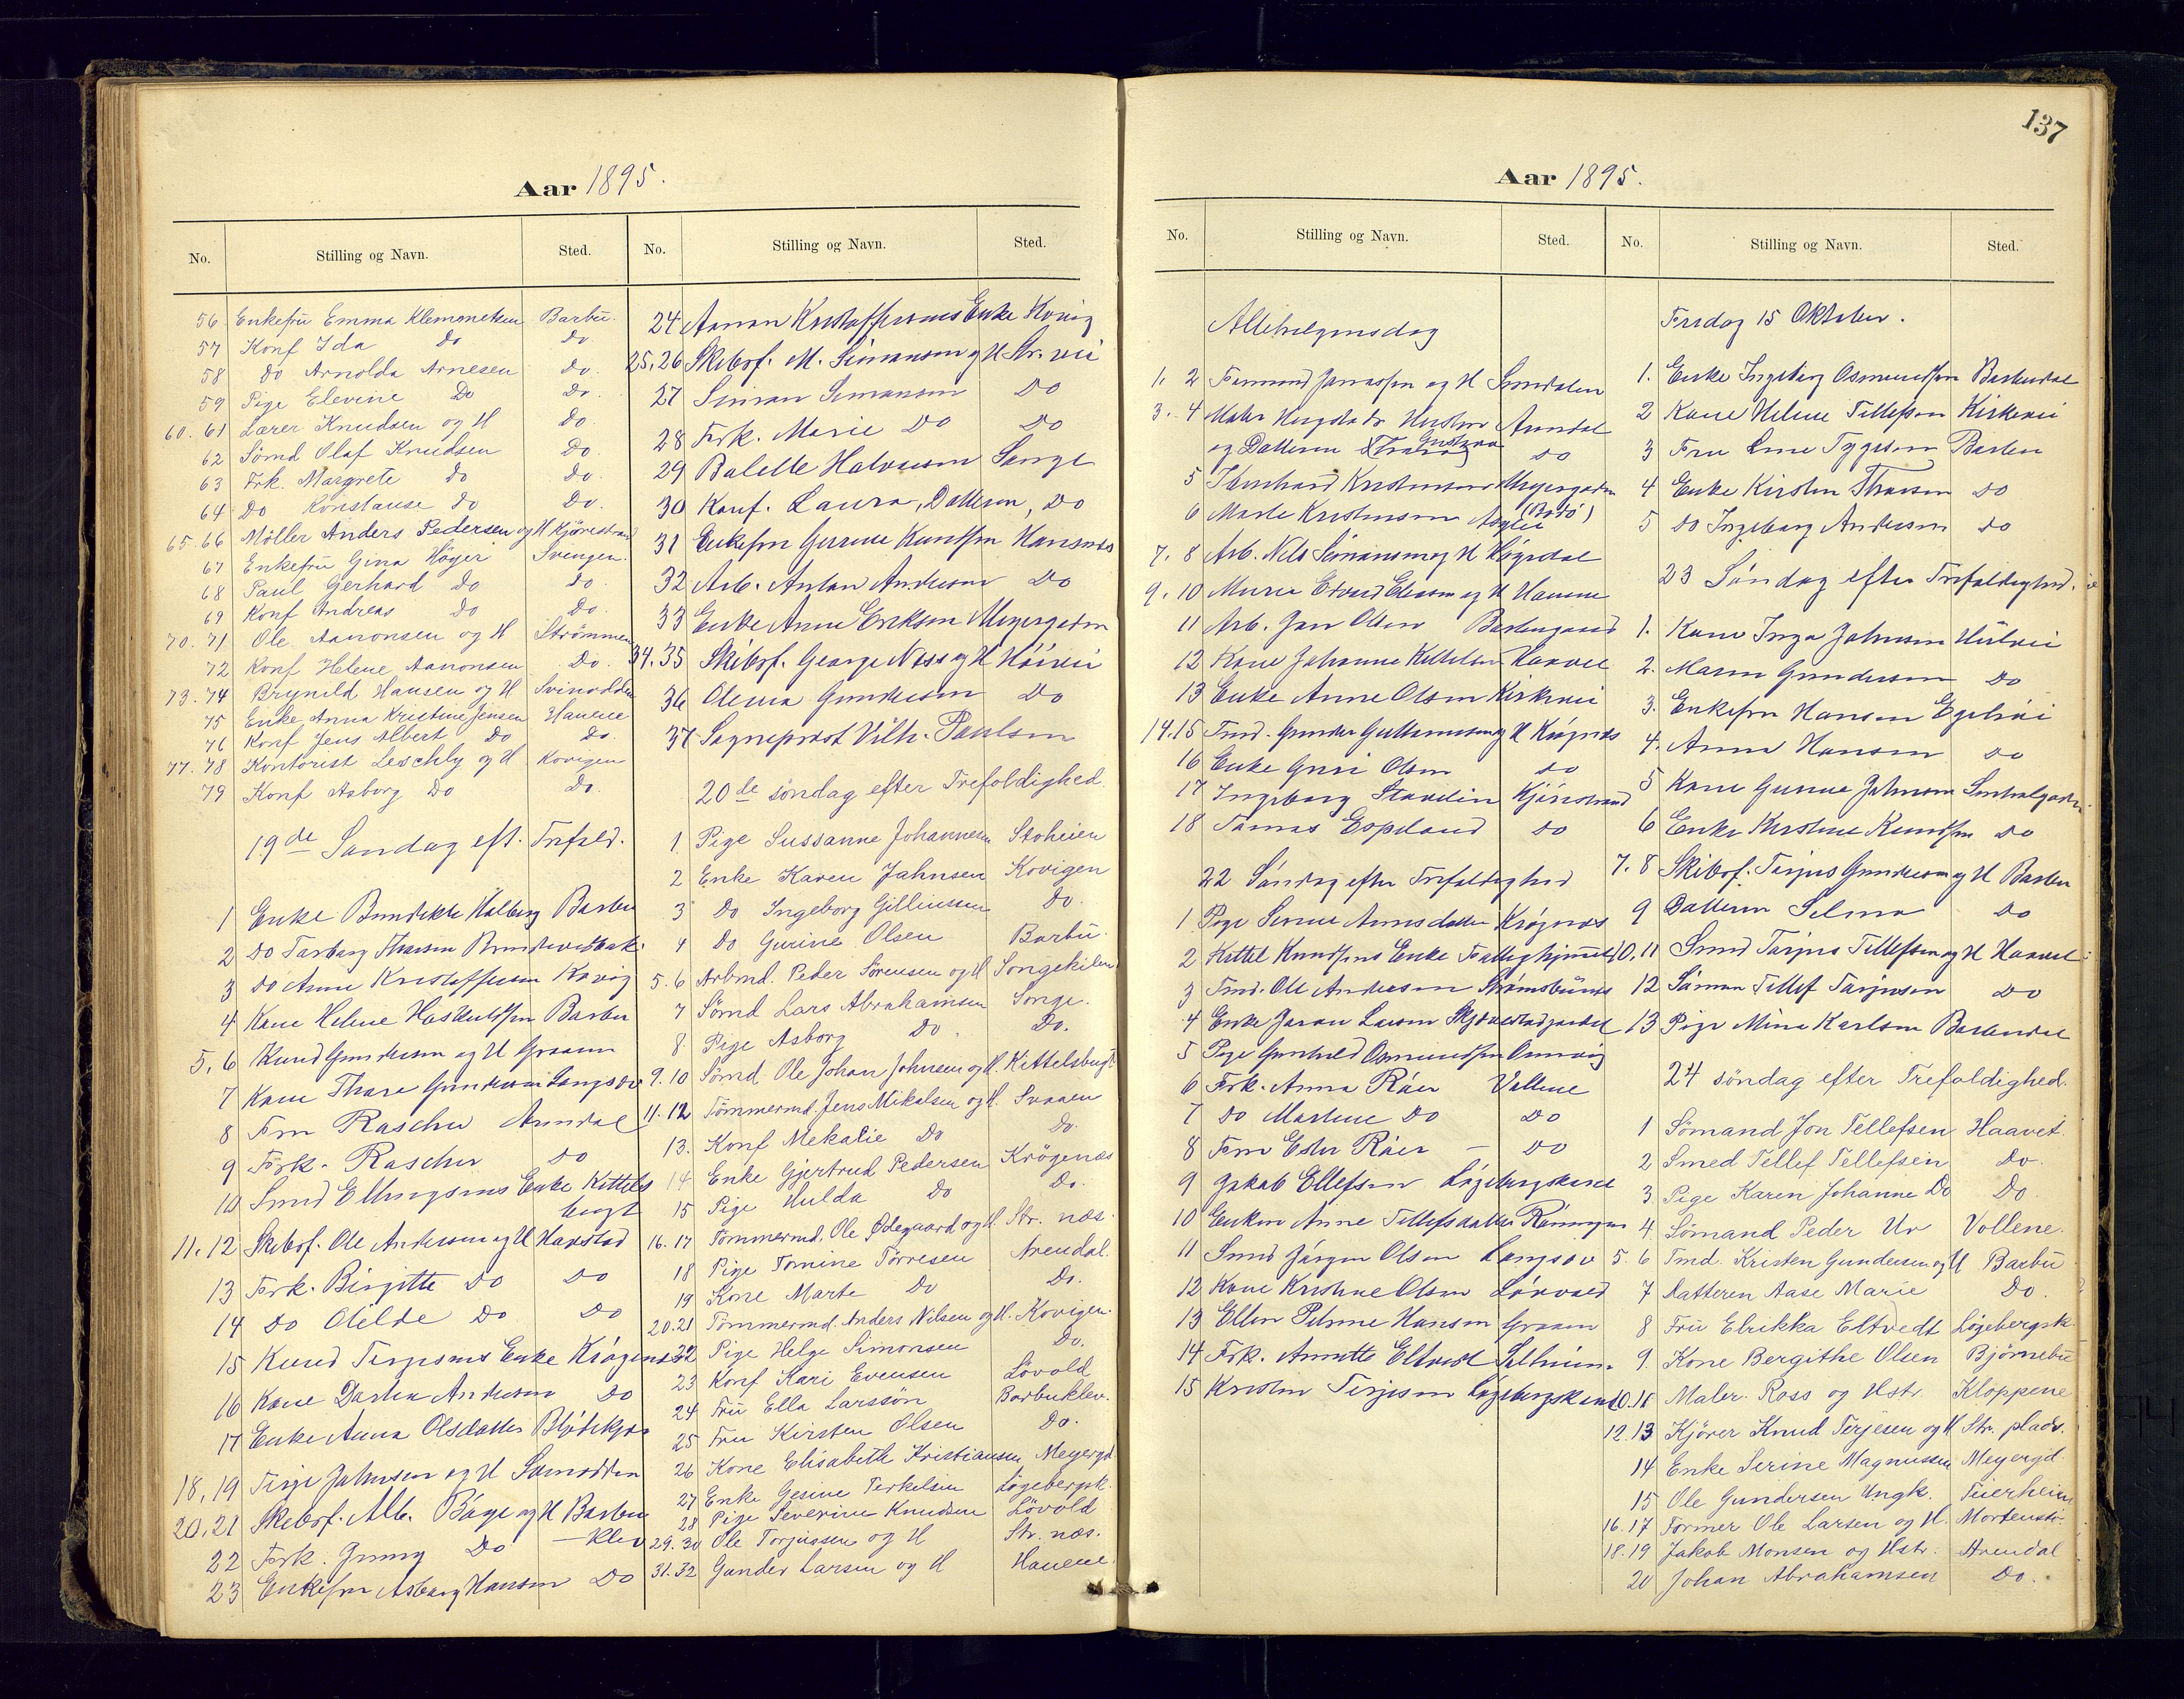 Aar 1895.
No. Stilling og Navn. Sted. No. Stilling og Navn. Sted.
56. Enkefru Emma Klemmetsen Barbu.
57 Konf Ida Do Do
58 Do Arnolda Arnesen Do.
59 Pige Elevine Do Do.
60. 61 Lærer Knudsen og H Do.
62 Sömd Olaf Knudsen Do.
63 Frk. Margrete Do Do.
64 Do Konstanse Do Do.
65. 66 Möller Anders Pedersen og H Kjörestrand
67 Enkefru Gina Höyer Svengen.
68 Paul Gerhard Do Do.
69 Konf Andreas Do Do.
70. 71 Ole Aanonsen og H Strömmen
72 Konf Helene Aanonsen Do.
73. 74 Brynild Hansen og H Svinodden
75 Enke Anna Kristine Jensen Havene
76 Konf Jens Albert Do Do.
77. 78 Kontorist Leschly og H Kovigen
79 Konf Asborg Do Do.
19de Söndag eft. Trefold.
1 Enke Bendikte Halberg Barbu
2 Do Tarberg Thorsen
3 Do Anne Kristoffersen Kovig
4 Kone Helene Barbu
5, 6 Knud Gundersen og H Graaen
7 Kone Thore Gundersen Langsæ
8 Fru Rascher Arendal
9 Frk. Rascher Do
10 Smed Ellingsens Enke Kittels
bugt
11. 12 Skibsf. Ole Andersen og H Havstad
13 Frk. Birgitte Do Do
14 Do Otilde Do Do
15 Knud Terjesens Enke Krögenes
16 Kone Dorthea Andersen Do
17 Enke Anna Olsdatter
18, 19 Terje Johnsen og H
20, 21 Skibsf. Alb. Böge og H Barbu
22 Frk. Jenny Do — klev
23 Enkefru Asborg Hansen Do
24 Aanon Kristoffersens Enke Kovig
25, 26 Skibsf. M. Simonsen og H Str. vei
27 Simon Simonsen Do
28 Frk. Marie Do Do
29 Bolette Halvorsen Songe
30 Konf. Laura, Datteren, Do
31 Enkefru Gurine Knudsen Havsnes
32 Arb. Anton Andersen Do
33 Enke Anne Eriksen Meyergaden
34. 35 Skibsf. George Næss og H Höivei
36 Olevia Gundersen Do
37 Sogneprest Vilh. Paulsen
20de söndag efter Trefoldighed
1 Pige Sussanne Johannesen Stoheien
2 Enke Karen Jahnsen Kovigen
3 Do Ingeborg Gillinssen Do.
4 Do Gurine Olsen Barbu.
5. 6 Arbmd. Peder Sörensen og H Songekilen
7 Sömd Lars Abrahamsen Songe.
8 Pige Asborg Do. Do.
9. 10 Sömd Ole Johan Johnsen og H. Kittelsbugt
11. 12 Tömmermd. Jens Mikalsen og H. Svaaen
13. Konf Mekalie Do Do.
14 Enke Gjertrud Pedersen Krögenæs
15 Pige Hulda Do Do.
16. 17 Tömmermd. Ole Ødegaard og H. Str. næs.
18 Pige Tomine Törresen Arendal.
19 Kone Marte Do Do.
20.21 Tömmermd. Anders Nilsen og H. Kovigen.
22 Pige Helge Simonsen Do.
23 Konf Kari Evensen Lövold
24 Fru Ella Larssön Barbuklev.
25 Fru Kirsten Olsen Do.
26 Kone Elisabeth Kristiansen Meyergd
27 Enke Gesine Terkelsen Lögebergsk.
28 Pige Severine Knudsen Lövold
29. 30 Ole Torjussen og H Str. næs.
31. 32 Gunder Larsen og H Havene.
137
Aar 1895.
No. Stilling og Navn. Sted. No. Stilling og Navn. Sted.
Allehelgensdag
1. 2 Formand Jonassen og H Songdalen
3. 4 Maler Hustru Arendal
og Datteren Gustava Do
5 Bernhard Kristensen Meyergaden
6 Marte Kristensen (Bodö)
7. 8 Arb. Nils Simonsen og H Lögedal
9. 10 Murer Edvard Eliesen og H Havene
11 Arb. Jan Olsen Barbugaard
12 Kone Johanne Kittelsen Haavet
13 Enke Anne Olsen Kirkevei
14. 15 Tmd. Gunder Guttormsen og H Krögenes
16 Enke Guri Olsen Do
17 Ingeborg Stavelin Kjörestrand
18 Tomas Espeland Do
22 Söndag efter Trefoldighed
1 Pige Serine Annsdatter Krögenes
2 Kittel Knudsens Enke Fattighjemmet
3 Tmd. Ole Andersen Strömsbunes
4 Enke Joran Larsen
5 Pige Gunhild Osmundsen
6 Frk. Anna Röer Vollene
7 Do Martine Do Do
8 Fru Ester Röer — Do
9 Jakob Ellefsen Lögebergskaret
10 Enken Anne Tellefsdatter Röningen
11 Smed Jörgen Olsen Langsæ
12 Kone Kristine Olsen Lövold
13 Ellen Petrine Hansen Graaen
14 Frk. Annette Eltvedt
15 Kristen Terjesen Lögebergskaret
Fredag 15 Oktober.
1. Enke Ingeborg Osmundsen Barbudal
2 Kone Helene Tellefsen Kirkevei
3 Fru Line Tygesen Barbu
4 Enke Kirsten Thorsen Do
5 Do Ingeborg Andersen Do
23 Söndag efter Trefoldighed.
1. Kone Inga Johnsen
2. Maren Gundersen Do
3. Enkefru Hansen
4. Anna Hansen Do
5 Kone Gunne Johnsen
6 Enke Kirstine Knudsen Do
7. 8 Skibsf. Terjes Gundersen og H Barbu
9 Datteren Selma Do
10. 11 Smed Tarjus Tellefsen og H Haavet
12 Söman Tellef Tarjusen Do
13 Pige Mina Karlsen Barbudal
24 söndag efter Trefoldighed.
1 Sömand Jon Tellefsen Haavet.
2 Smed Tellef Tellefsen Do.
3 Pige Karen Johanne Do Do.
4 Sömand Peder Ur Vollene.
5. 6 Tmd. Kristen Gundersen og H Barbu
7 Datteren Aase Marie Do.
8 Fru Elrikka Eltvedt Lögebergsk.
9. Kone Bergithe Olsen Björnebu
10. 11 Maler Ross og Hstr. Kloppene
12. 13 Kjörer Knud Terjesen og H Str. plads.
14 Enke Serine Magnussen Meyergd.
15 Ole Gundersen Ungk. Feierheien
16. 17 Former Ole Larsen og H. Mortenstr.
18. 19 Jakob Monsen og Hstr. Arendal
20 Johan Abrahamsen Do.